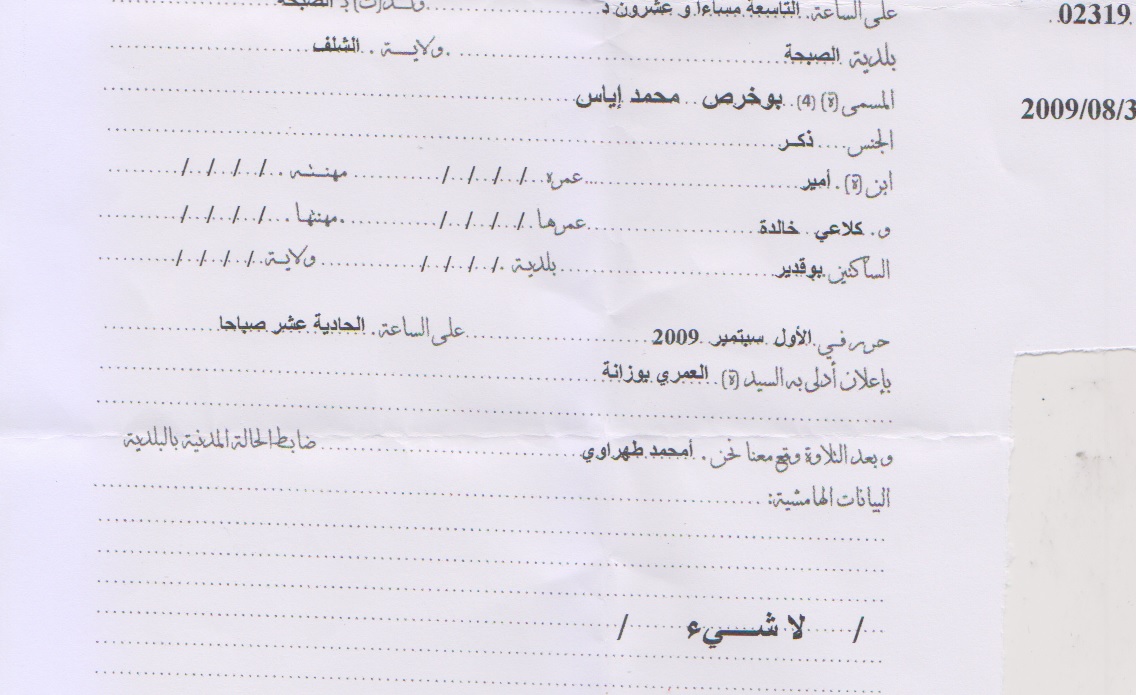 على الساعة. التاسعة مساءا و عشرون د ولد(ت) بـ الصبحة
02319
بلدية الصبحة ولاية. الشلف
المسمى (ة) (4). بوخرص محمد إياس
2009/08/3
الجنس ذكر
ابن (ة). أمير عمره / / / / مهنته. / / / /
و. كلاعي خالدة عمرها / / / / مهنتها. / / / /
الساكنين بوقدير بلدية / / / / ولاية / / / /
حرر في. الأول سبتمبر 2009 على الساعة. الحادية عشر صباحا
بإعلان أدلى به السيد (ة). العمري بوزانة
و بعد التلاوة وقع معنا نحن. أمحمد طهراوي ضابط الحالة المدنية بالبلدية
البيانات الهامشية:
/ لا شيء /